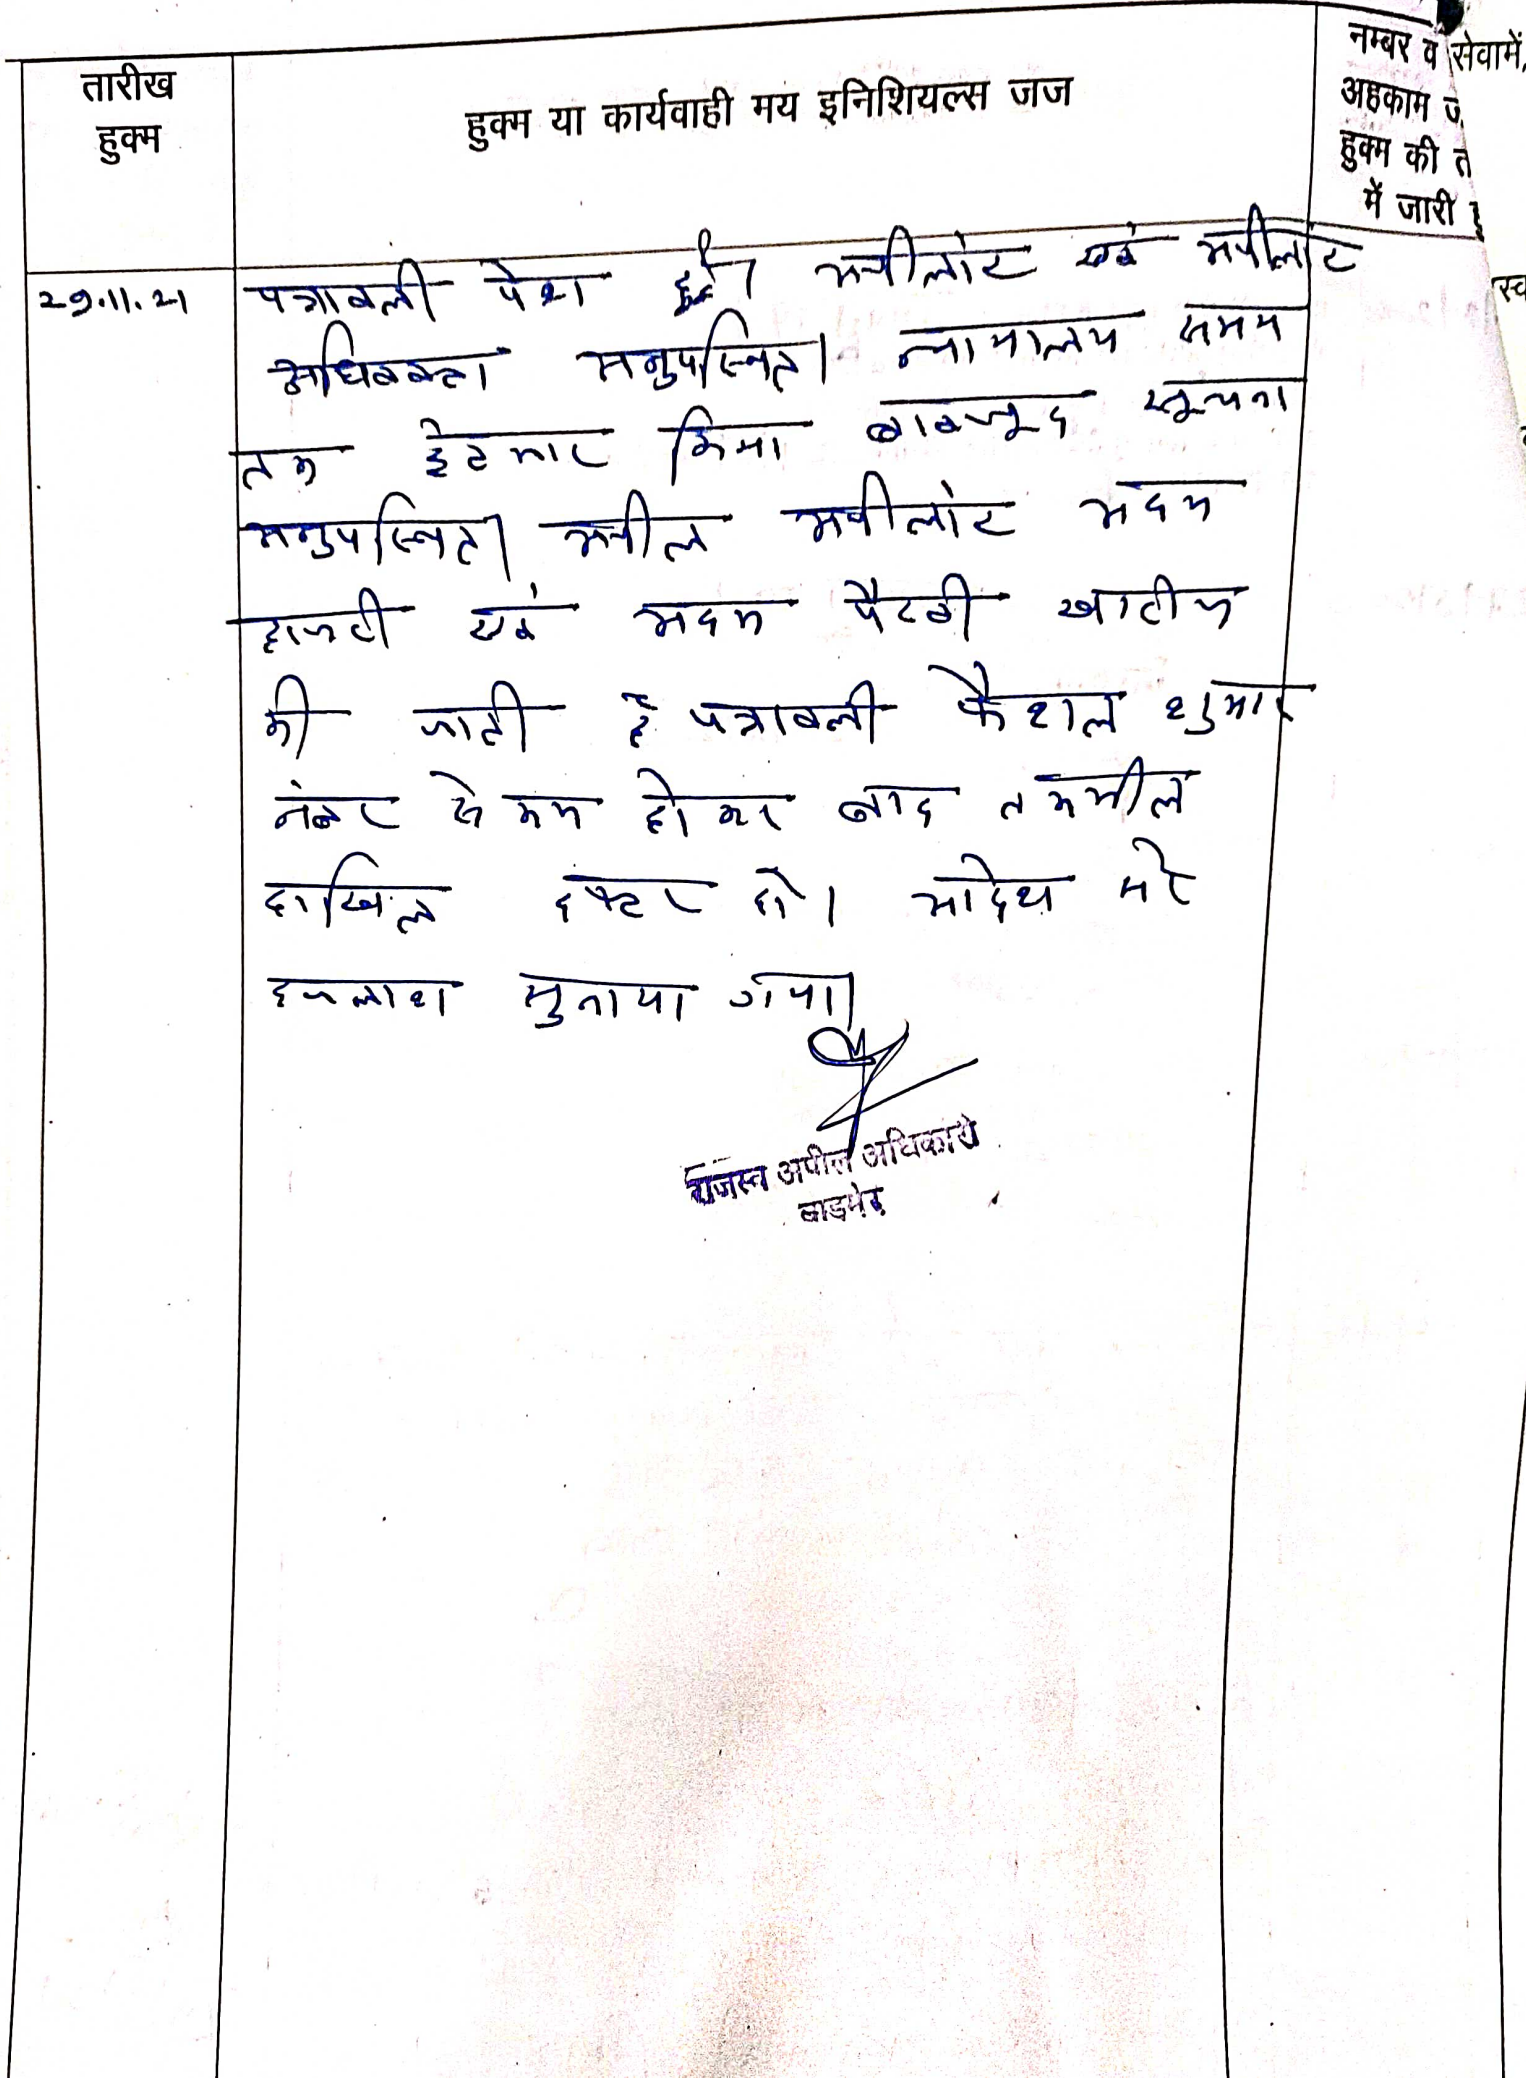 तारीख
हुक्म
हुक्म या कार्यवाही मय इनिशियल्स जज
नम्बर व
अहकाम ज
हुक्म की त
में जारी
सेवामें,
29.11.21
पत्रावली पेश हुई। अपीलांट एवं अपीलांट
अधिवक्ता अनुपस्थित। न्यायालय समय
तक इंतजार किया बावजूद सूचना
अनुपस्थित। अपील अपीलांट अदम
हाजरी एवं अदम पैरवी खारीज
की जाती है पत्रावली फैशल शुमार
नंबर से कम होकर बाद तकमील
दाखिल दफ्तर हो। आदेश सरे
इजलाश सुनाया गया।
राजस्व अपील अधिकारी
बाड़मेर